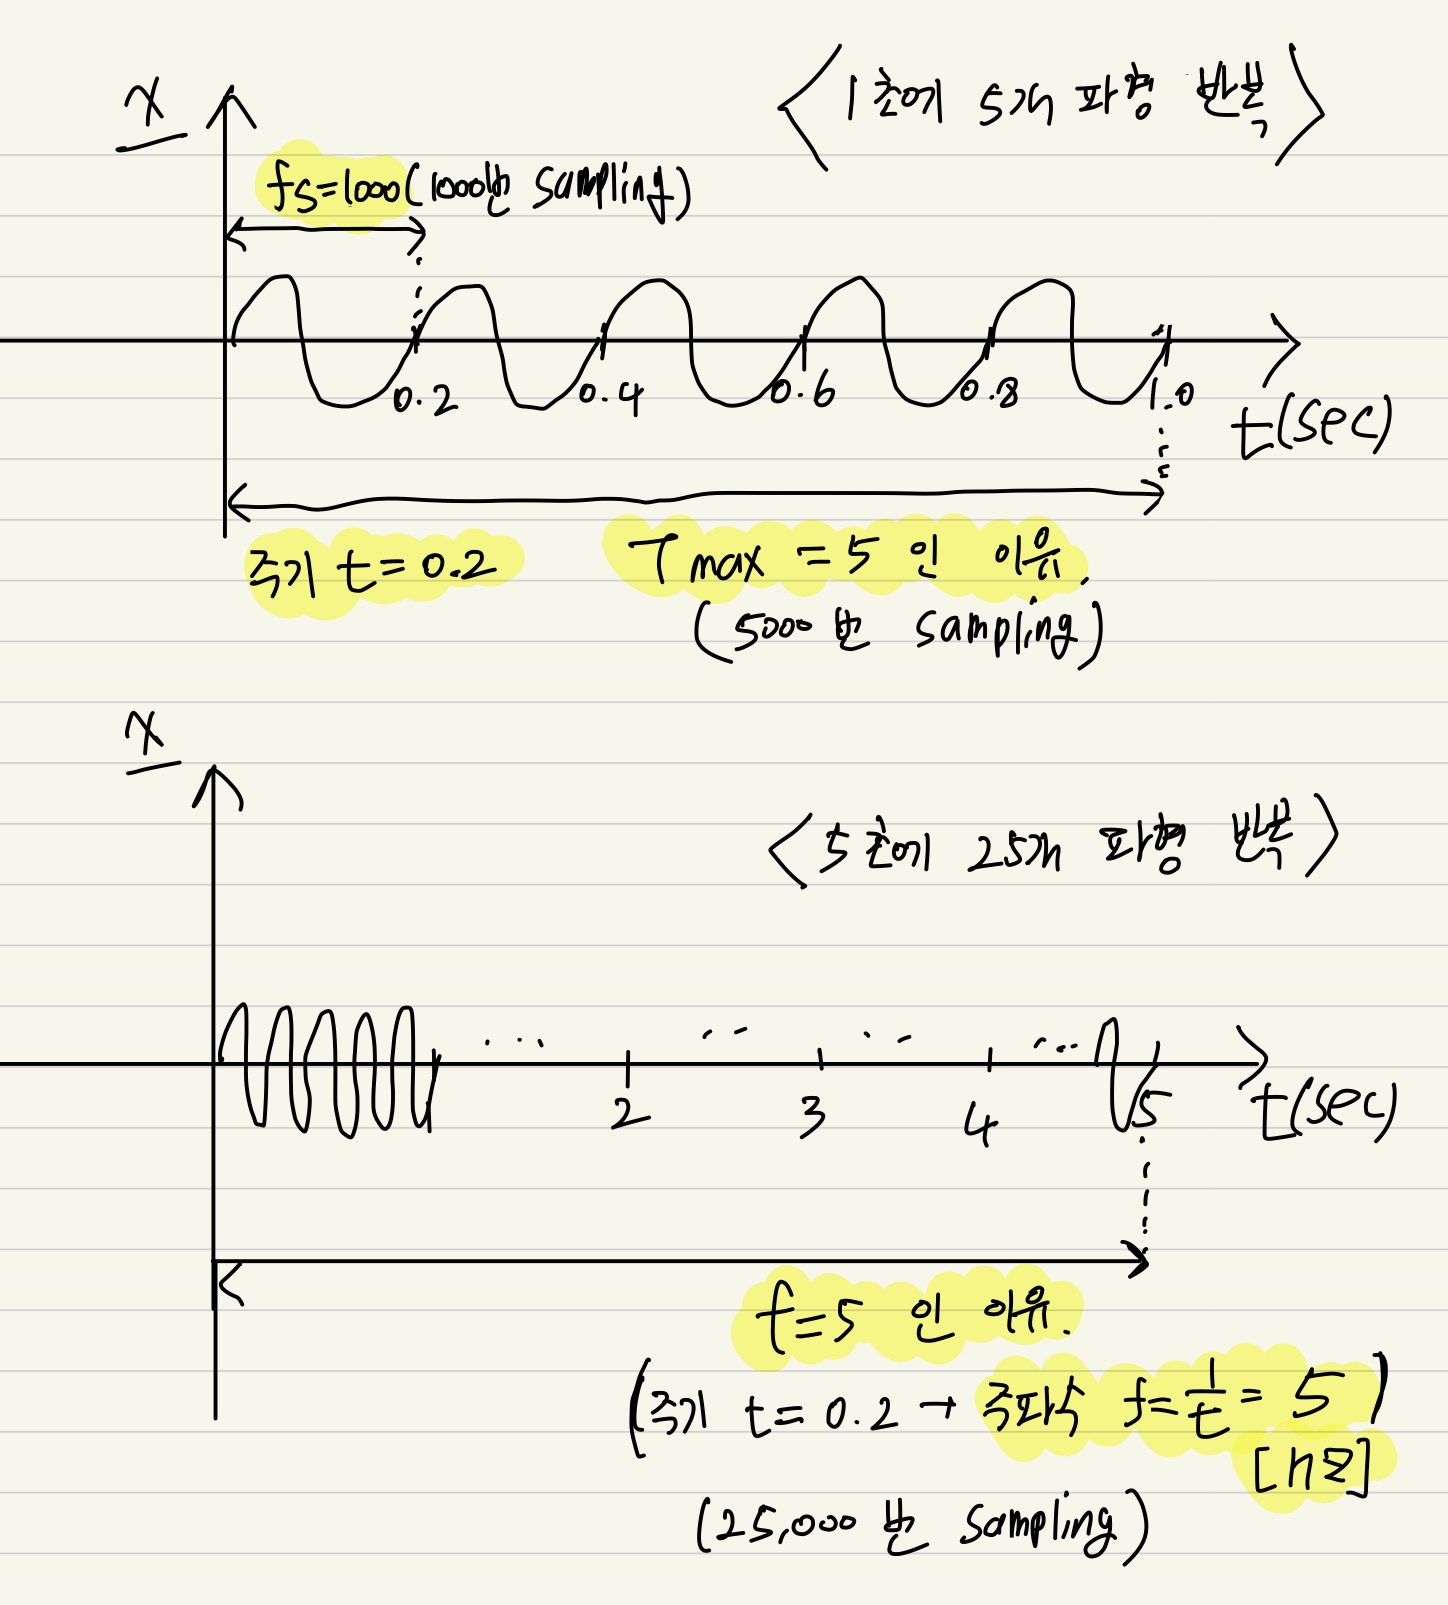 x
<1초에 5개 파형 반복>
fs=1000(1000번 sampling)
0.2 0.4 0.6 0.8 1.0
t(sec)
주기 t=0.2 Tmax = 5 인 이유.
(5000번 sampling)
x
<5초에 25개 파형 반복>
... .. .. ...
2 3 4 5 t(sec)
f=5 인 이유.
(주기 t=0.2 → 주파수 f=1/t=5)
[hz]
(25,000번 sampling)